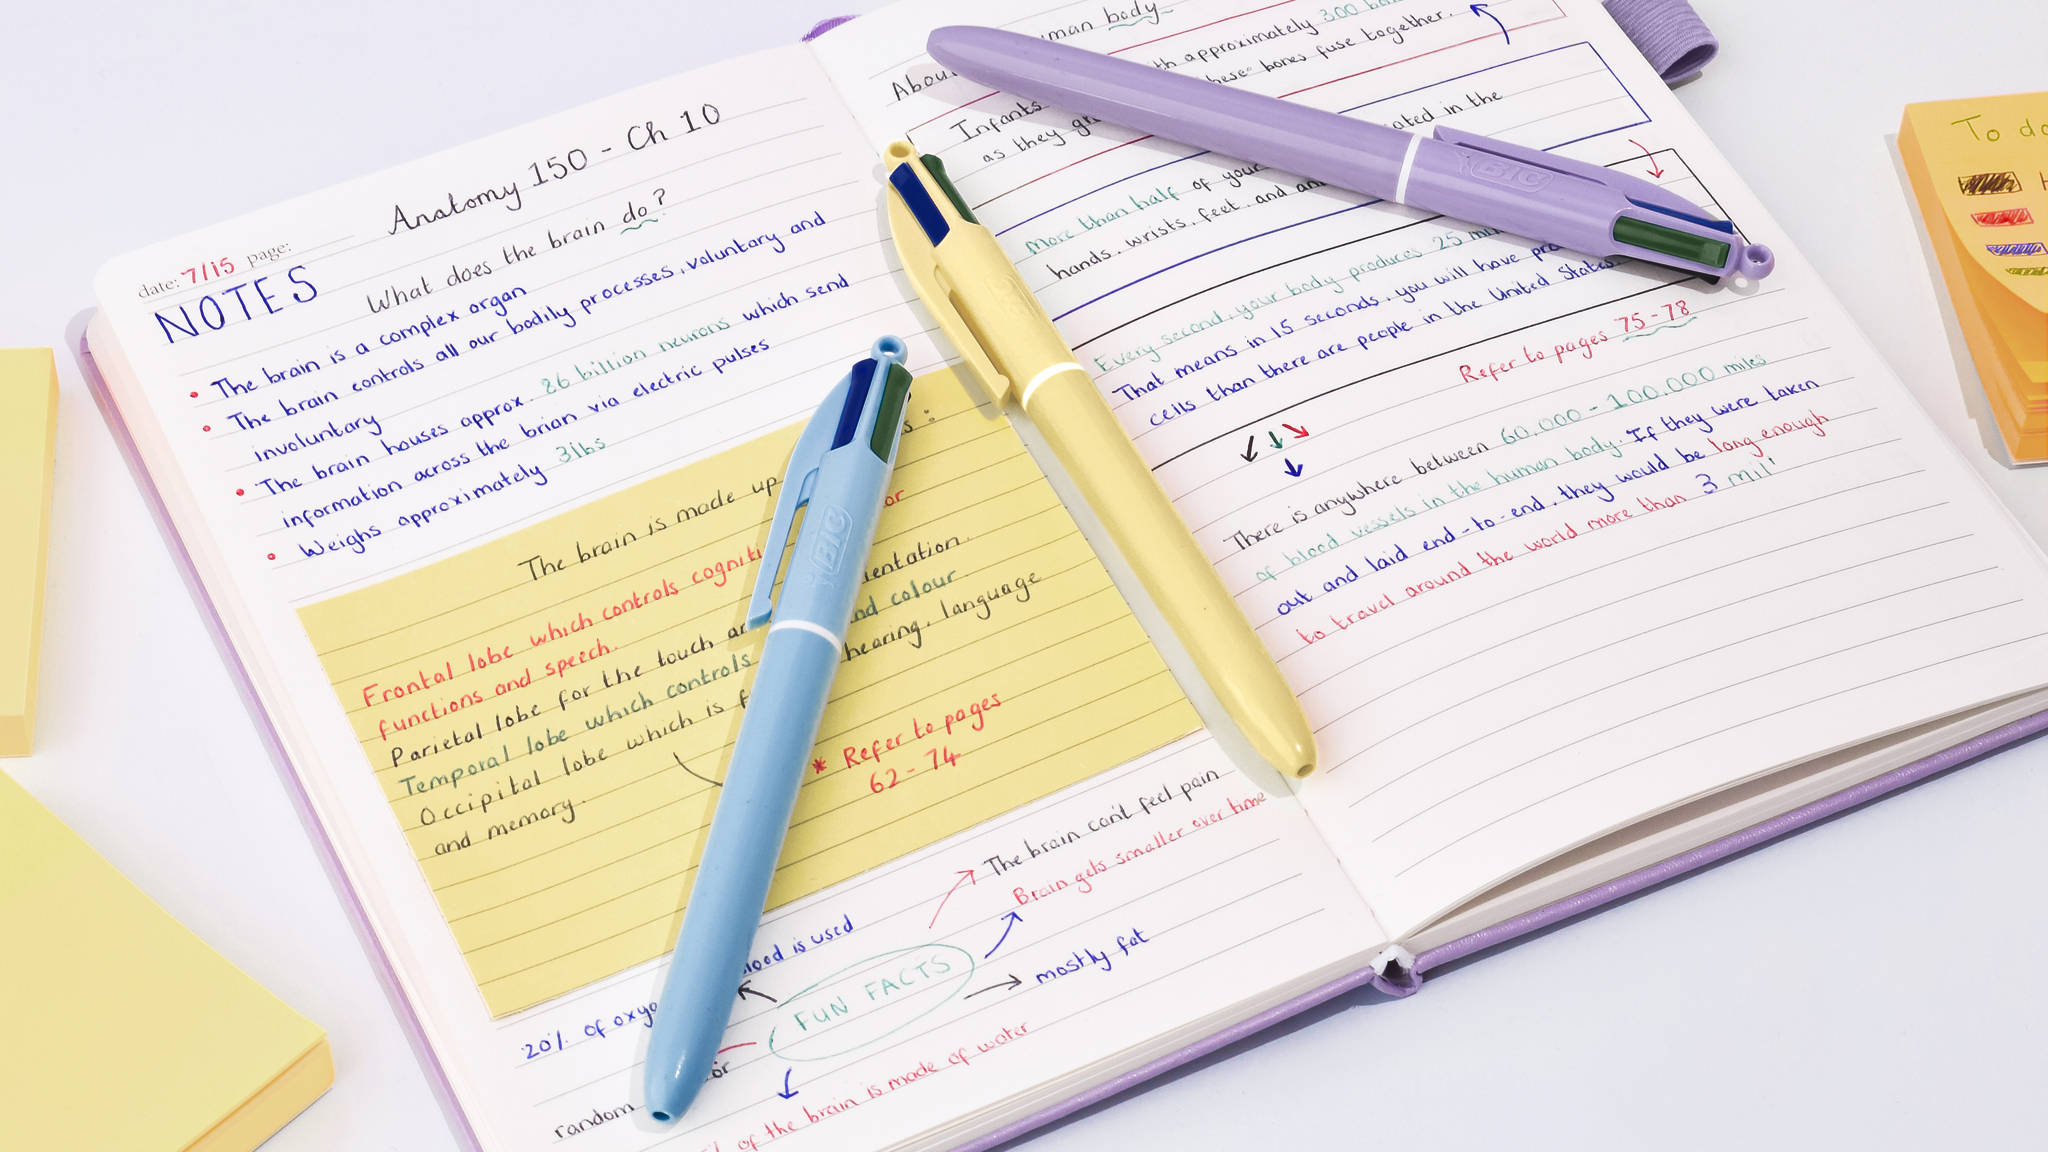 date: 7/15 page:
Anatomy 150 - Ch 10
NOTES
What does the brain do?
• The brain is a complex organ
• The brain controls all our bodily processes, voluntary and
involuntary
• The brain houses approx. 86 billion neurons which send
information across the brian via electric pulses
• Weighs approximately 3lbs
The brain is made up
Frontal lobe which controls
functions and speech.
Parietal lobe for the touch
Temporal lobe which controls colour.
Occipital lobe which is hearing, language
and memory.
* Refer to pages
62-74
The brain can't feel pain
Brain gets smaller over time
FUN FACTS
mostly fat
20% of is used
random
of the brain is made of water
body
About
Infants with approximately 300
as they bones fuse together.
More than half of your in the
hands, wrists, feet, and
Every second, your body produces 25
That means in 15 seconds, you will have
cells than there are people in the United States.
Refer to pages 75-78
There is anywhere between 60,000 - 100,000 miles
of blood vessels in the human body. If they were taken
out and laid end-to-end, they would be long enough
to travel around the world more than 3
BIC
BIC
To do